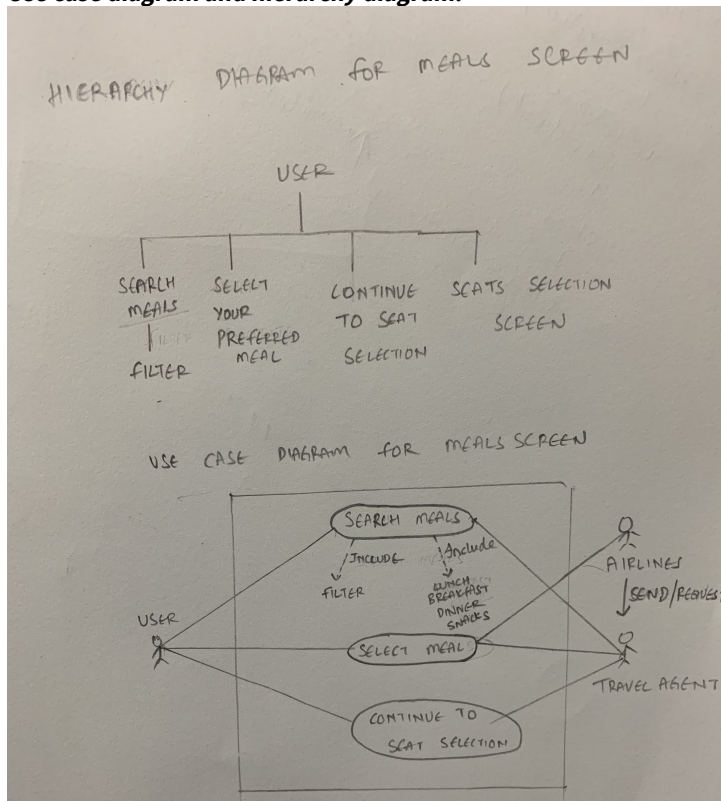 Use case diagram and hierarchy diagram:
HIERARCHY DIAGRAM FOR MEALS SCREEN
USER
SEARCH MEALS
FILTER
SELECT YOUR PREFERRED MEAL
CONTINUE TO SEAT SELECTION
SEATS SELECTION SCREEN
FILTER
USE CASE DIAGRAM FOR MEALS SCREEN
SEARCH MEALS
INCLUDE
Include
FILTER
LUNCH
BREAKFAST
DINNER
SNACKS
AIRLINES
SEND/REQUES
USER
SELECT MEAL
TRAVEL AGENT
CONTINUE TO
SEAT SELECTION